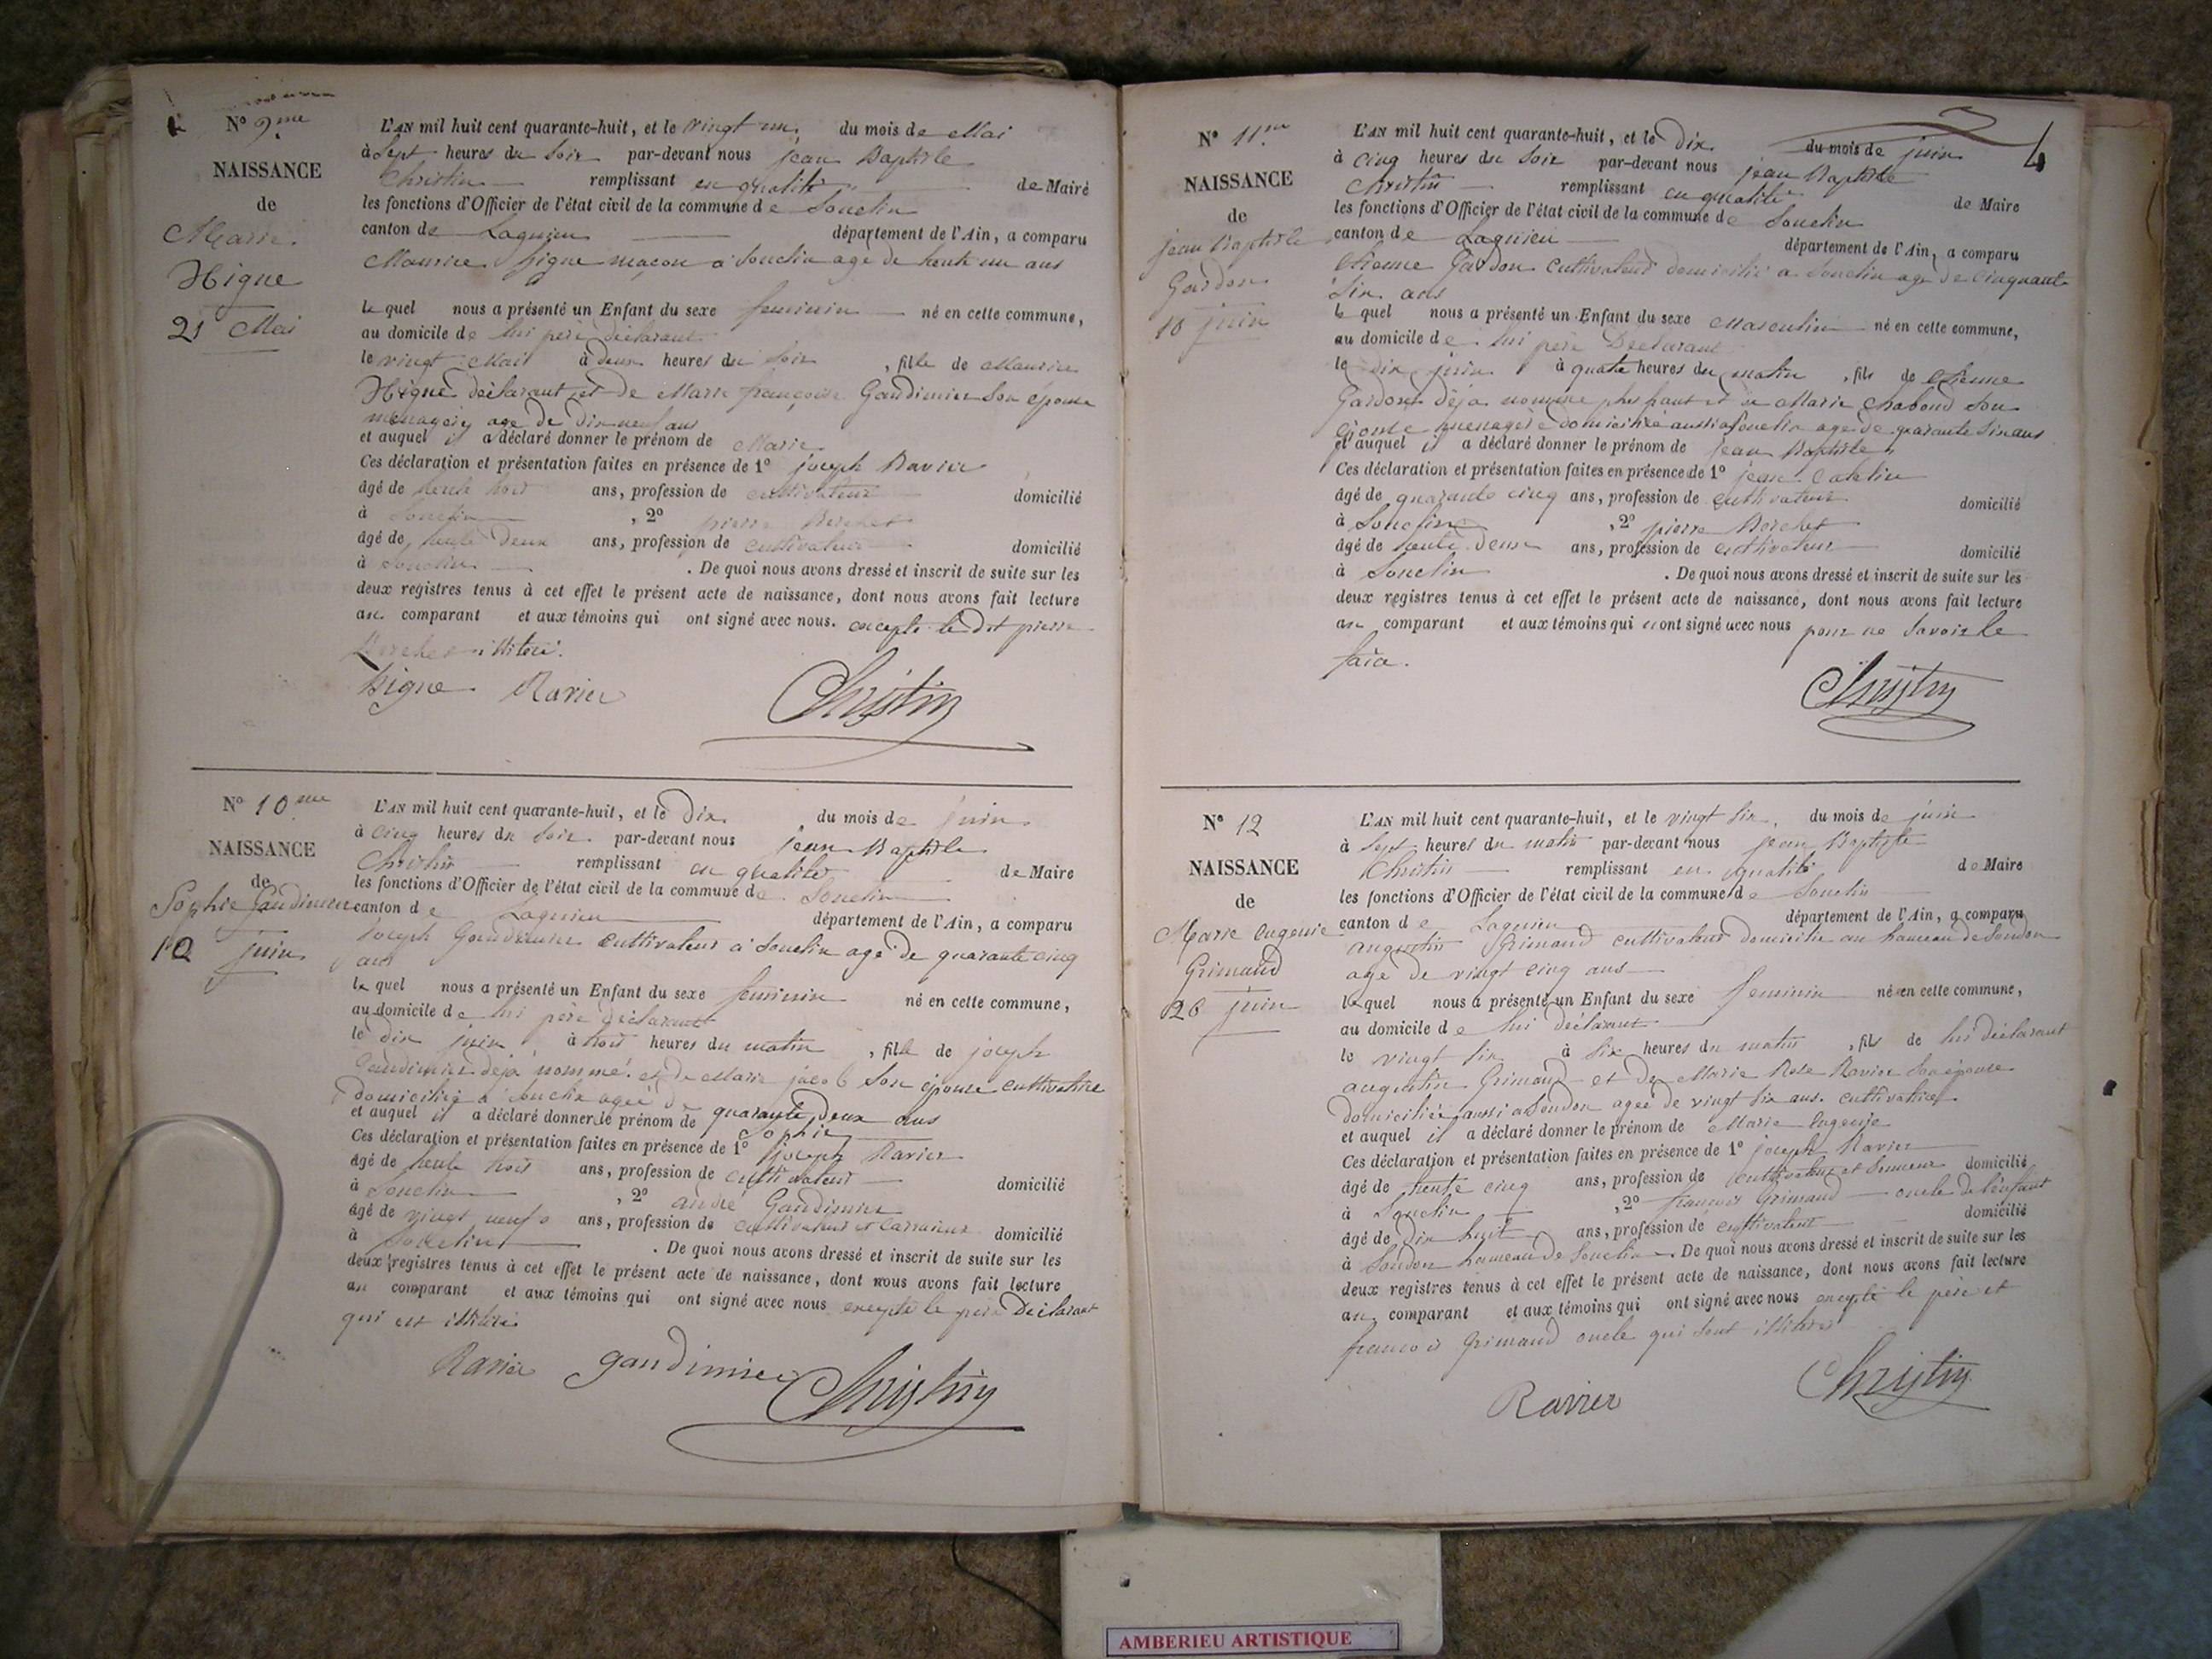 N° 9.me
NAISSANCE
de
Marie
Higne
21 Mai
L'AN mil huit cent quarante-huit, et le vingt un du mois de Mai
à Sept heures du Soir par-devant nous jean Baptiste
Christin remplissant en qualité de Maire
les fonctions d'Officier de l'état civil de la commune de Souclin
canton de Lagnieu département de l'Ain, a comparu
Maurice higne maçon a Souclin age de trente un ans
le quel nous a présenté un Enfant du sexe feminin né en cette commune,
au domicile de lui père déclarant
le vingt Mai à deux heures du Soir, fille de Maurice
Higne déclarant et de Marie françoise Gaudimier Son épouse
menagère age de dix neuf ans
et auquel il a déclaré donner le prénom de Marie
Ces déclaration et présentation faites en présence de 1° joseph Ravier
âgé de trente trois ans, profession de cultivateur domicilié
à Souclin, 2° pierre Berchet
âgé de trente deux ans, profession de cultivateur domicilié
à Souclin. De quoi nous avons dressé et inscrit de suite sur les
deux registres tenus à cet effet le présent acte de naissance, dont nous avons fait lecture
au comparant et aux témoins qui ont signé avec nous. excepté le dit pierre
Berchet illiteré.
higne Ravier Christin
N° 10 me
NAISSANCE
de
Sophie Gaudimier
10 juin
L'AN mil huit cent quarante-huit, et le Dix du mois de juin
à cinq heures du Soir par-devant nous jean Baptiste
Christin remplissant en qualité de Maire
les fonctions d'Officier de l'état civil de la commune de Souclin
canton de Lagnieu département de l'Ain, a comparu
joseph Gaudimier cultivateur a Souclin age de quarante cinq
ans
le quel nous a présenté un Enfant du sexe feminin né en cette commune,
au domicile de lui père déclarant
le dix juin à trois heures du matin, fille de joseph
Gaudimier déjà nommé et de Marie jacob Son épouse cultivatrice
domiciliée a Souclin agée de
et auquel il a déclaré donner le prénom de quarante deux ans
Sophie
Ces déclaration et présentation faites en présence de 1° joseph Ravier
âgé de trente trois ans, profession de cultivateur domicilié
à Souclin, 2° andré Gaudimier
âgé de vingt neuf ans, profession de cultivateur et domicilié
à Souclin. De quoi nous avons dressé et inscrit de suite sur les
deux registres tenus à cet effet le présent acte de naissance, dont nous avons fait lecture
au comparant et aux témoins qui ont signé avec nous excepté le père Déclarant
qui est illiteré
Ravier gaudimier Christin
4
N° 11 me
NAISSANCE
de
jean Baptiste
Gardon
10 juin
L'AN mil huit cent quarante-huit, et le Dix du mois de juin
à cinq heures du Soir par-devant nous jean Baptiste
Christin remplissant en qualité de Maire
les fonctions d'Officier de l'état civil de la commune de Souclin
canton de Lagnieu département de l'Ain, a comparu
Etienne Gardon cultivateur domicilié a Souclin age de cinquante
Six ans
le quel nous a présenté un Enfant du sexe Masculin né en cette commune,
au domicile de lui père Déclarant
le dix juin à quatre heures du matin, fils de Etienne
Gardon déja nommé plus haut et de Marie Chaboud Son
épouse menagère domiciliée aussi a Souclin age de quarante Six ans
et auquel il a déclaré donner le prénom de jean Baptiste
Ces déclaration et présentation faites en présence de 1° jean Catelin
âgé de quarante cinq ans, profession de cultivateur domicilié
à Souclin, 2° pierre Berchet
âgé de trente deux ans, profession de cultivateur domicilié
à Souclin. De quoi nous avons dressé et inscrit de suite sur les
deux registres tenus à cet effet le présent acte de naissance, dont nous avons fait lecture
au comparant et aux témoins qui n'ont signé avec nous pour ne Savoir le
faire.
Christin
N° 12
NAISSANCE
de
Marie Eugenie
Grimaud
26 juin
L'AN mil huit cent quarante-huit, et le vingt Six du mois de juin
à Sept heures du matin par-devant nous jean Baptiste
Christin remplissant en qualité de Maire
les fonctions d'Officier de l'état civil de la commune de Souclin
canton de Lagnieu département de l'Ain, a comparu
augustin Grimaud cultivateur domicilié au hameau de Soudon
age de vingt cinq ans
le quel nous a présenté un Enfant du sexe feminin né en cette commune,
au domicile de lui déclarant
le vingt Six à Six heures du matin, fils de lui déclarant
augustin Grimaud et de Marie Rose Ravier Son épouse
domiciliée aussi a Soudon agée de vingt Six ans. cultivatrice
et auquel il a déclaré donner le prénom de Marie Eugenie
Ces déclaration et présentation faites en présence de 1° joseph Ravier
âgé de trente cinq ans, profession de cultivateur et Sonneur domicilié
à Souclin, 2° françois Grimaud oncle de l'enfant
âgé de Dix huit ans, profession de cultivateur domicilié
à Soudon hameau de Souclin. De quoi nous avons dressé et inscrit de suite sur les
deux registres tenus à cet effet le présent acte de naissance, dont nous avons fait lecture
au comparant et aux témoins qui ont signé avec nous excepté le père et
françois Grimaud oncle qui Sont illiterés
Ravier Christin
AMBERIEU ARTISTIQUE